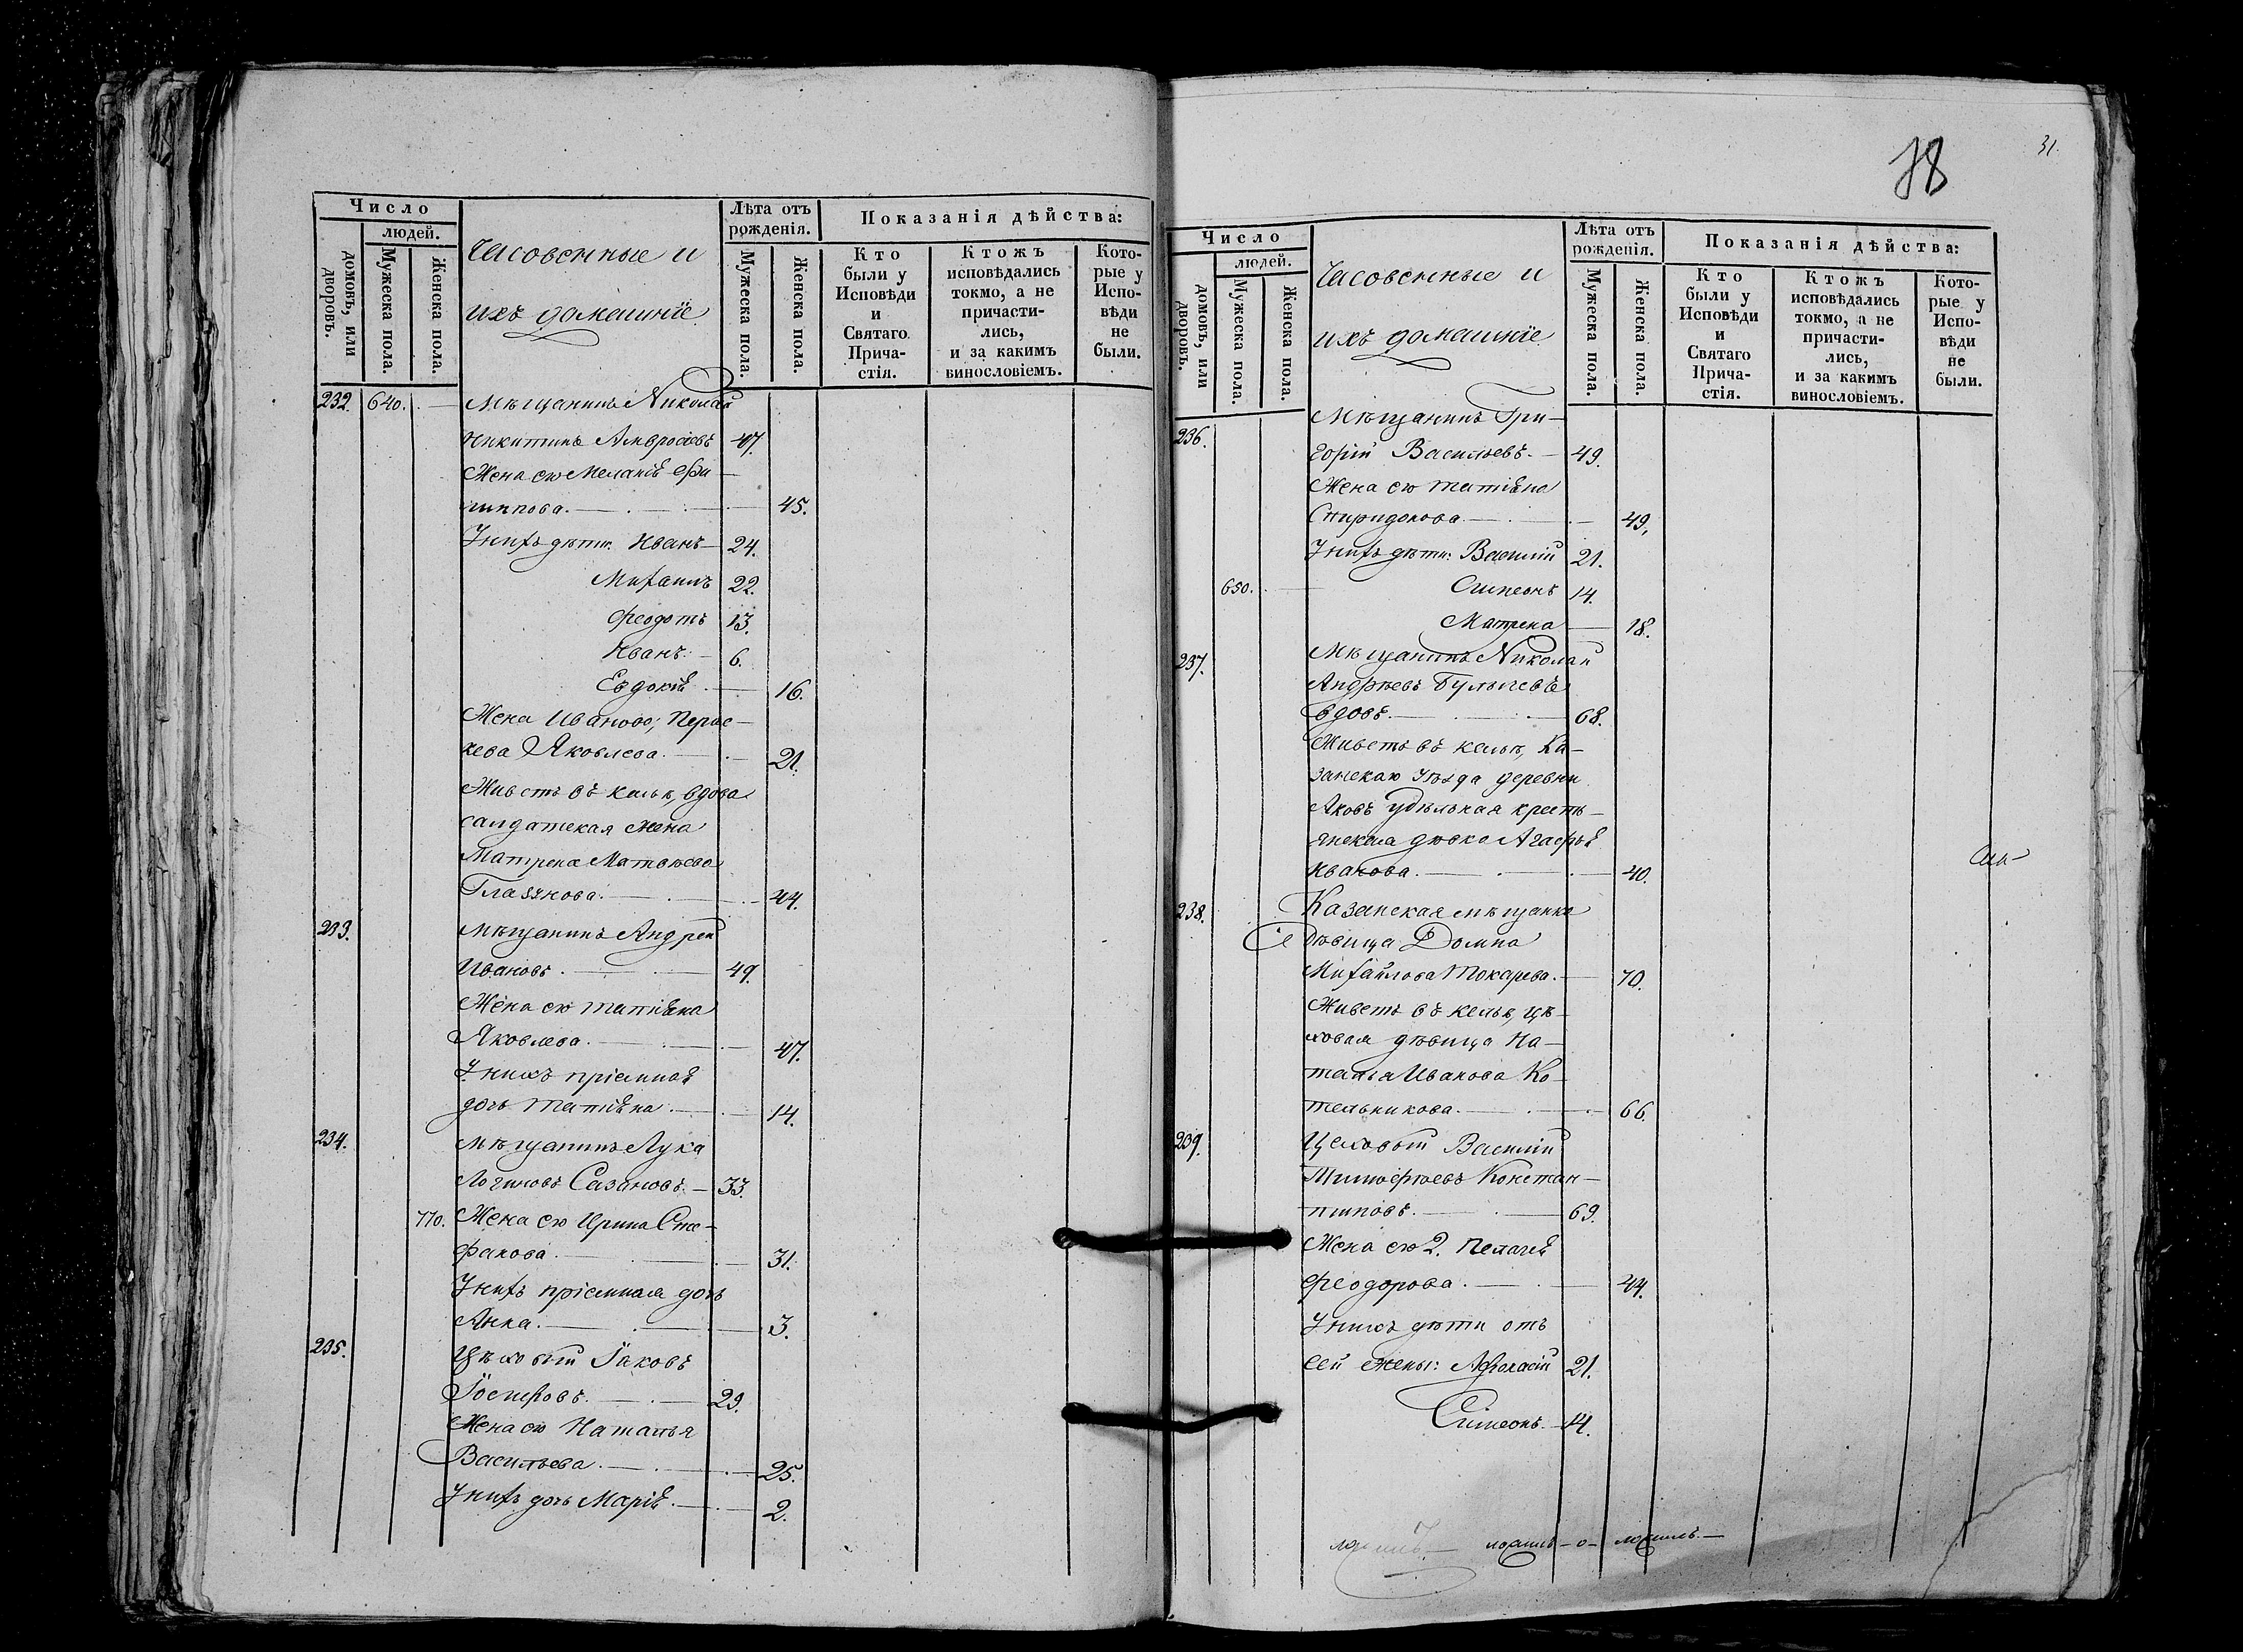 Число
людей.
домовъ, или дворовъ.
Мужеска пола.
Женска пола.
Часовенные и
ихъ домашніе
Лѣта отъ
рожденія.
Мужеска пола.
Женска пола.
Показанія дѣйства:
Кто
были у
Исповѣди
и
Святаго
Прича-
стія.
Ктожъ
исповѣдались
токмо, а не
причасти-
лись,
и за какимъ
винословіемъ.
Кото-
рые у
Испо-
вѣди
не
были.
232. 640. Мѣщанинъ Николай
Никитинъ Амвросіевъ 47.
Жена его Меланія Фи-
липпова. 45.
У нихъ дѣти: Иванъ 24.
Михаилъ 22.
Феодотъ 13.
Иванъ 6.
Евдокія 16.
Жена Иванова; Парас-
кева Яковлева. 21.
Живетъ въ кельѣ, вдова
салдатская жена
Матрена Матвѣева
Глазунова. 44.
233. Мѣщанинъ Андрей
Ивановъ. 49.
Жена его Татіяна
Яковлева. 47.
У нихъ пріемная
дочь Татіяна. 14.
234. Мѣщанинъ Лука
Логиновъ Сазановъ. 33.
770. Жена его Ирина Сте-
фанова. 31.
У нихъ пріемная дочь
Анна. 3.
235. Цѣховый Іаковъ
Іосифовъ. 29.
Жена его Наталья
Васильева. 25.
У нихъ дочь Марія. 2.
78
31.
Число
людей.
домовъ, или дворовъ.
Мужеска пола.
Женска пола.
Часовенные и
ихъ домашніе
Лѣта отъ
рожденія.
Мужеска пола.
Женска пола.
Показанія дѣйства:
Кто
были у
Исповѣди
и
Святаго
Прича-
стія.
Ктожъ
исповѣдались
токмо, а не
причасти-
лись,
и за какимъ
винословіемъ.
Кото-
рые у
Испо-
вѣди
не
были.
236. Мѣщанинъ Гри-
горій Васильевъ. 49.
Жена его Татіяна
Спиридонова. 49.
У нихъ дѣти: Василій 21.
650. Симеонъ 14.
Матрена 18.
237. Мѣщанинъ Николай
Андрѣевъ Булычевъ
вдовъ. 68.
Живетъ въ кельѣ, Ка-
занскаго уѣзда деревни
удѣльная кресть-
янская дѣвка Агафья
Иванова. 40.
238. Казанская мѣщанка
дѣвица Домна
Михайлова Токарева. 70.
Живетъ въ кельѣ, цѣ-
ховая дѣвица На-
талья Иванова Ко-
тельникова. 66.
239. Цеховый Василій
Тимофѣевъ Констан-
тиновъ. 69.
Жена его 2. Пелагія
Феодорова. 44.
У нихъ дѣти отъ
сей жены: Афанасій 21.
Симеонъ. 14.